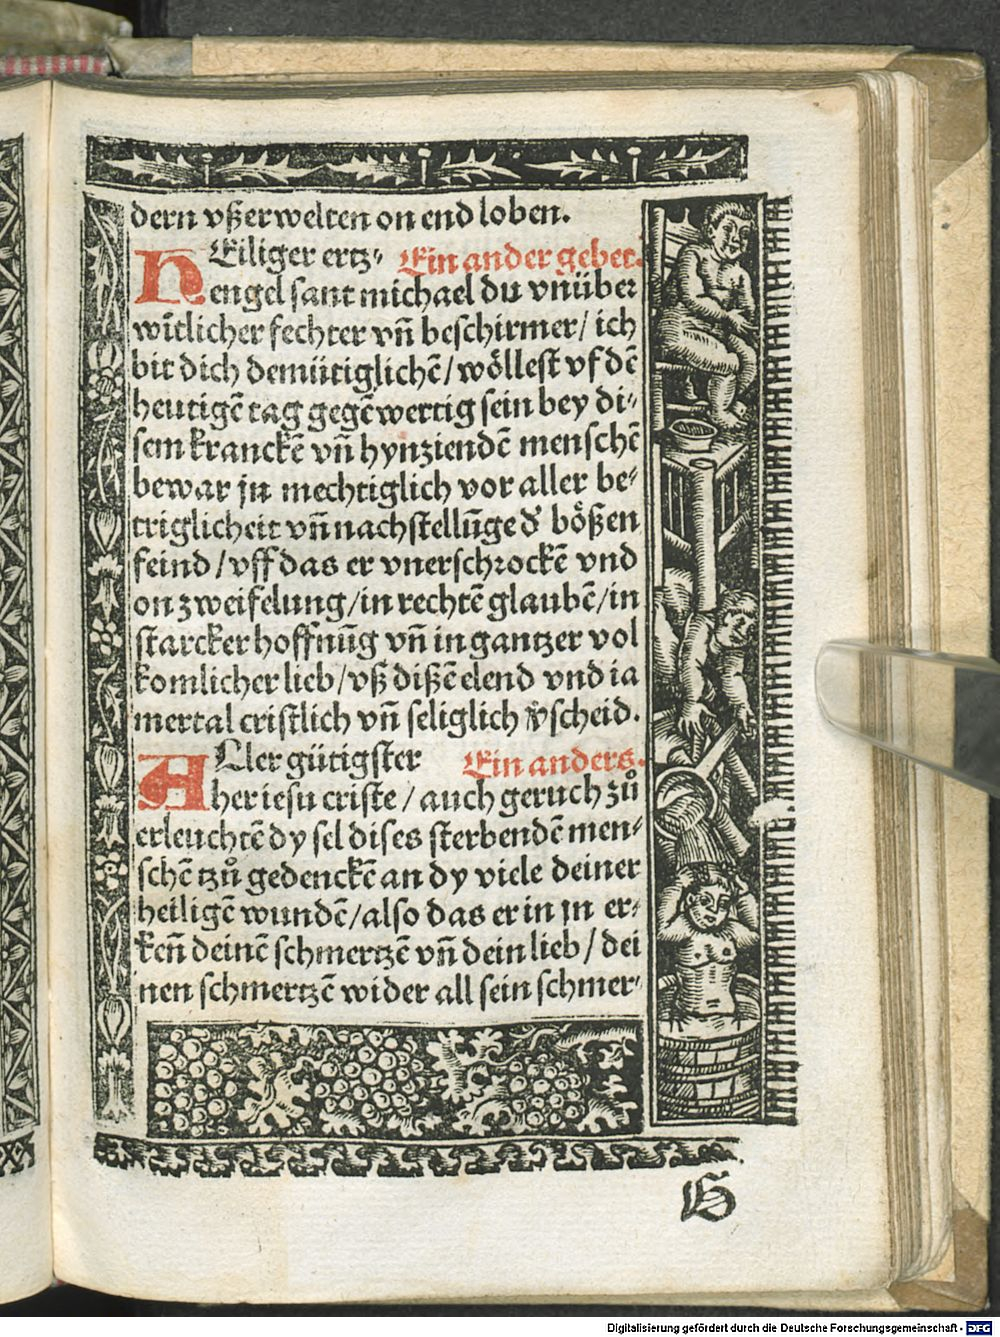 dern vßer welten on end loben.
HEiliger ertz⸗ Ein ander gebet.
engel sant michael du vnüber
wītlicher fechter vn̄ beschirmer/ ich
bit dich demütiglichē/ wöllest vf dē
heutigē tag gegēwertig sein bey di⸗
sem kranckē vn̄ hynziendē menschē
bewar jn mechtiglich vor aller be⸗
triglicheit vn̄ nachstellūge d̕ bößen
feind/ vff das er vnerschrockē vnd
on zweifelung/ in rechtē glaubē/ in
starcker hoffnūg vn̄ in gantzer vol
komlicher lieb/ vß dißē elend vnd ia
mertal cristlich vn̄ seliglich v̕scheid.
ALler gütigster Ein anders.
her iesu criste/ auch geruch zů
erleuchtē dy sel dises sterbendē men⸗
schē tzů gedenckē an dy viele deiner
heiligē wundē/ also das er in jn er⸗
ken̄ deinē schmertzē vn̄ dein lieb/ dei
nen schmertzē wider all sein schmer⸗
G
Digitalisierung gefördert durch die Deutsche Forschungsgemeinschaft - DFG